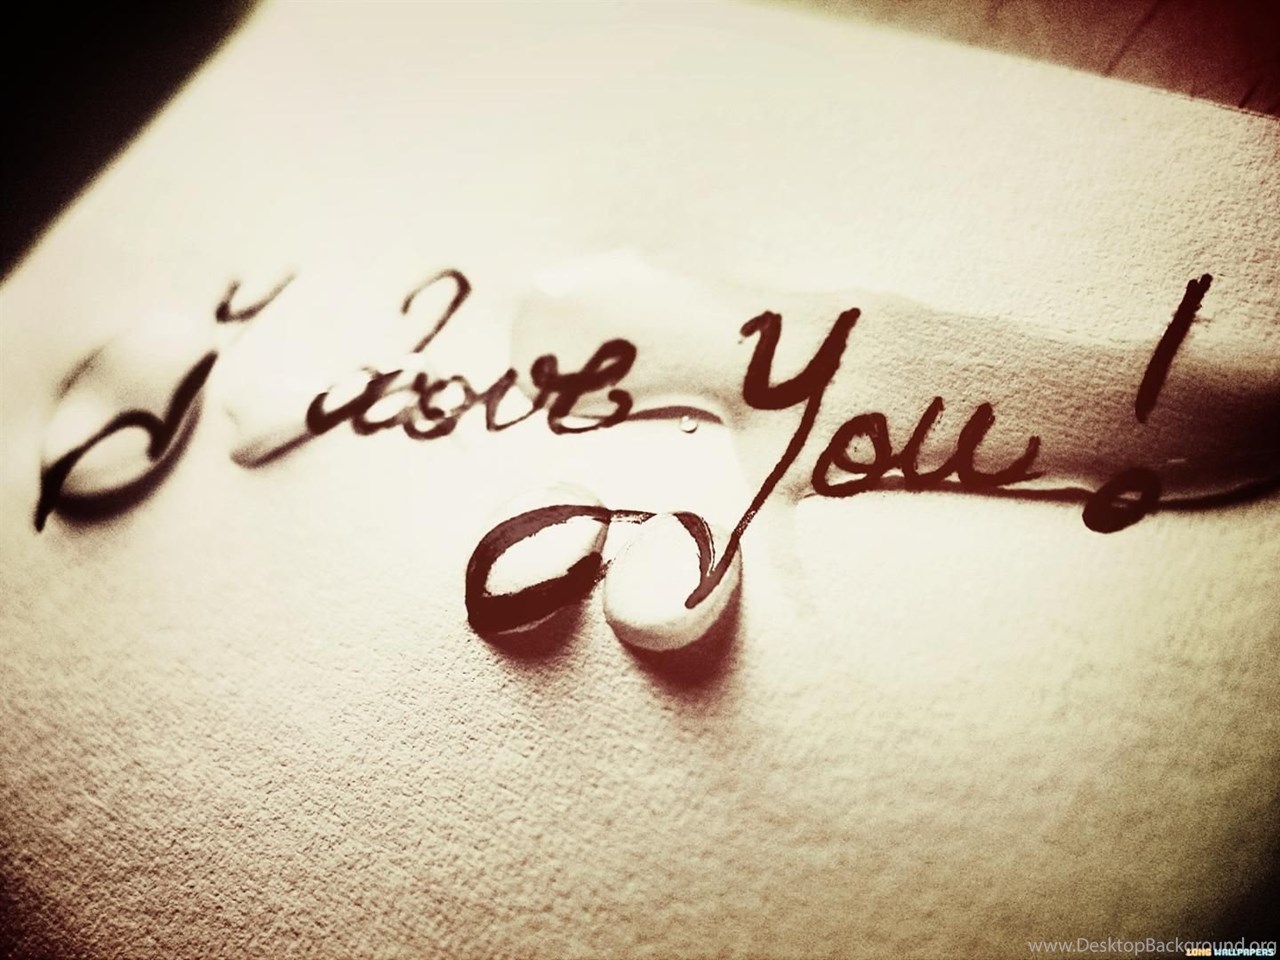 I Love You!
www.DesktopBackground.org
LONG WALLPAPERS